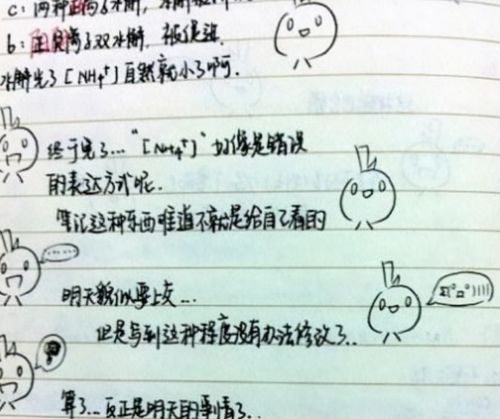 c：两种正离子水解，水解
b：正负离子双水解，被促进
水解完了 [NH₄⁺] 自然就小了啊．
终于完了…“[NH₄⁺]”好像是错误
的表达方式呢．
笔记这种东西难道不就是给自己看的
………
明天貌似要上交…
Σ(°ロ°))))
但是写到这种程度没有办法修改了..
算了…反正是明天的事情了..